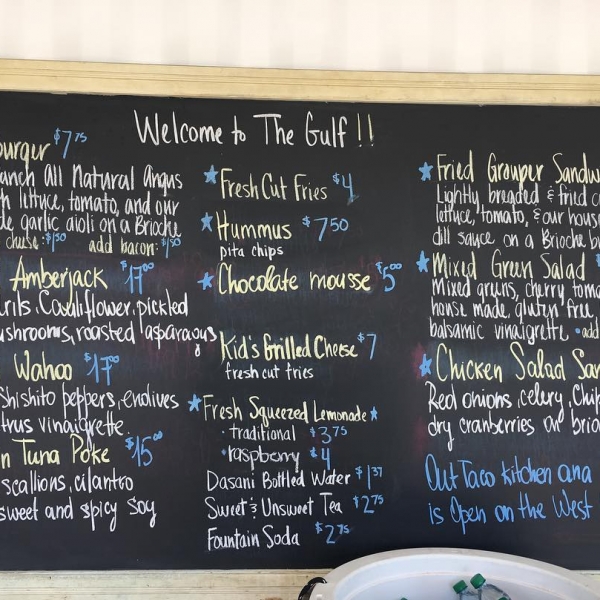 Welcome to The Gulf!!
burger $7.75
anch All Natural Angus
lettuce, tomato, and our
garlic aioli on a Brioche
cheese: $1.50 add bacon: $1.50
Amberjack $17.00
Cauliflower, pickled
ushrooms, roasted asparagus
Wahoo $17.00
Shishito peppers, endives
trus vinaigrette.
n Tuna Poke $15.00
scallions, cilantro
sweet and spicy soy
Fresh Cut Fries $4
Hummus $7.50
pita chips
Chocolate mousse $5.00
Kid's Grilled Cheese $7
fresh cut fries
Fresh Squeezed Lemonade
· traditional $3.75
· raspberry $4
Dasani Bottled Water $1.37
Sweet & Unsweet Tea $2.75
Fountain Soda $2.75
Fried Grouper Sandw
Lightly breaded & fried
lettuce, tomato, & our hous
dill sauce on a Brioche b
Mixed Green Salad $
Mixed greens, cherry toma
house made, gluten free
balsamic vinaigrette · add
Chicken Salad San
Red onions, celery, Chi
dry cranberries on brio
Out Taco kitchen and
is Open on the West